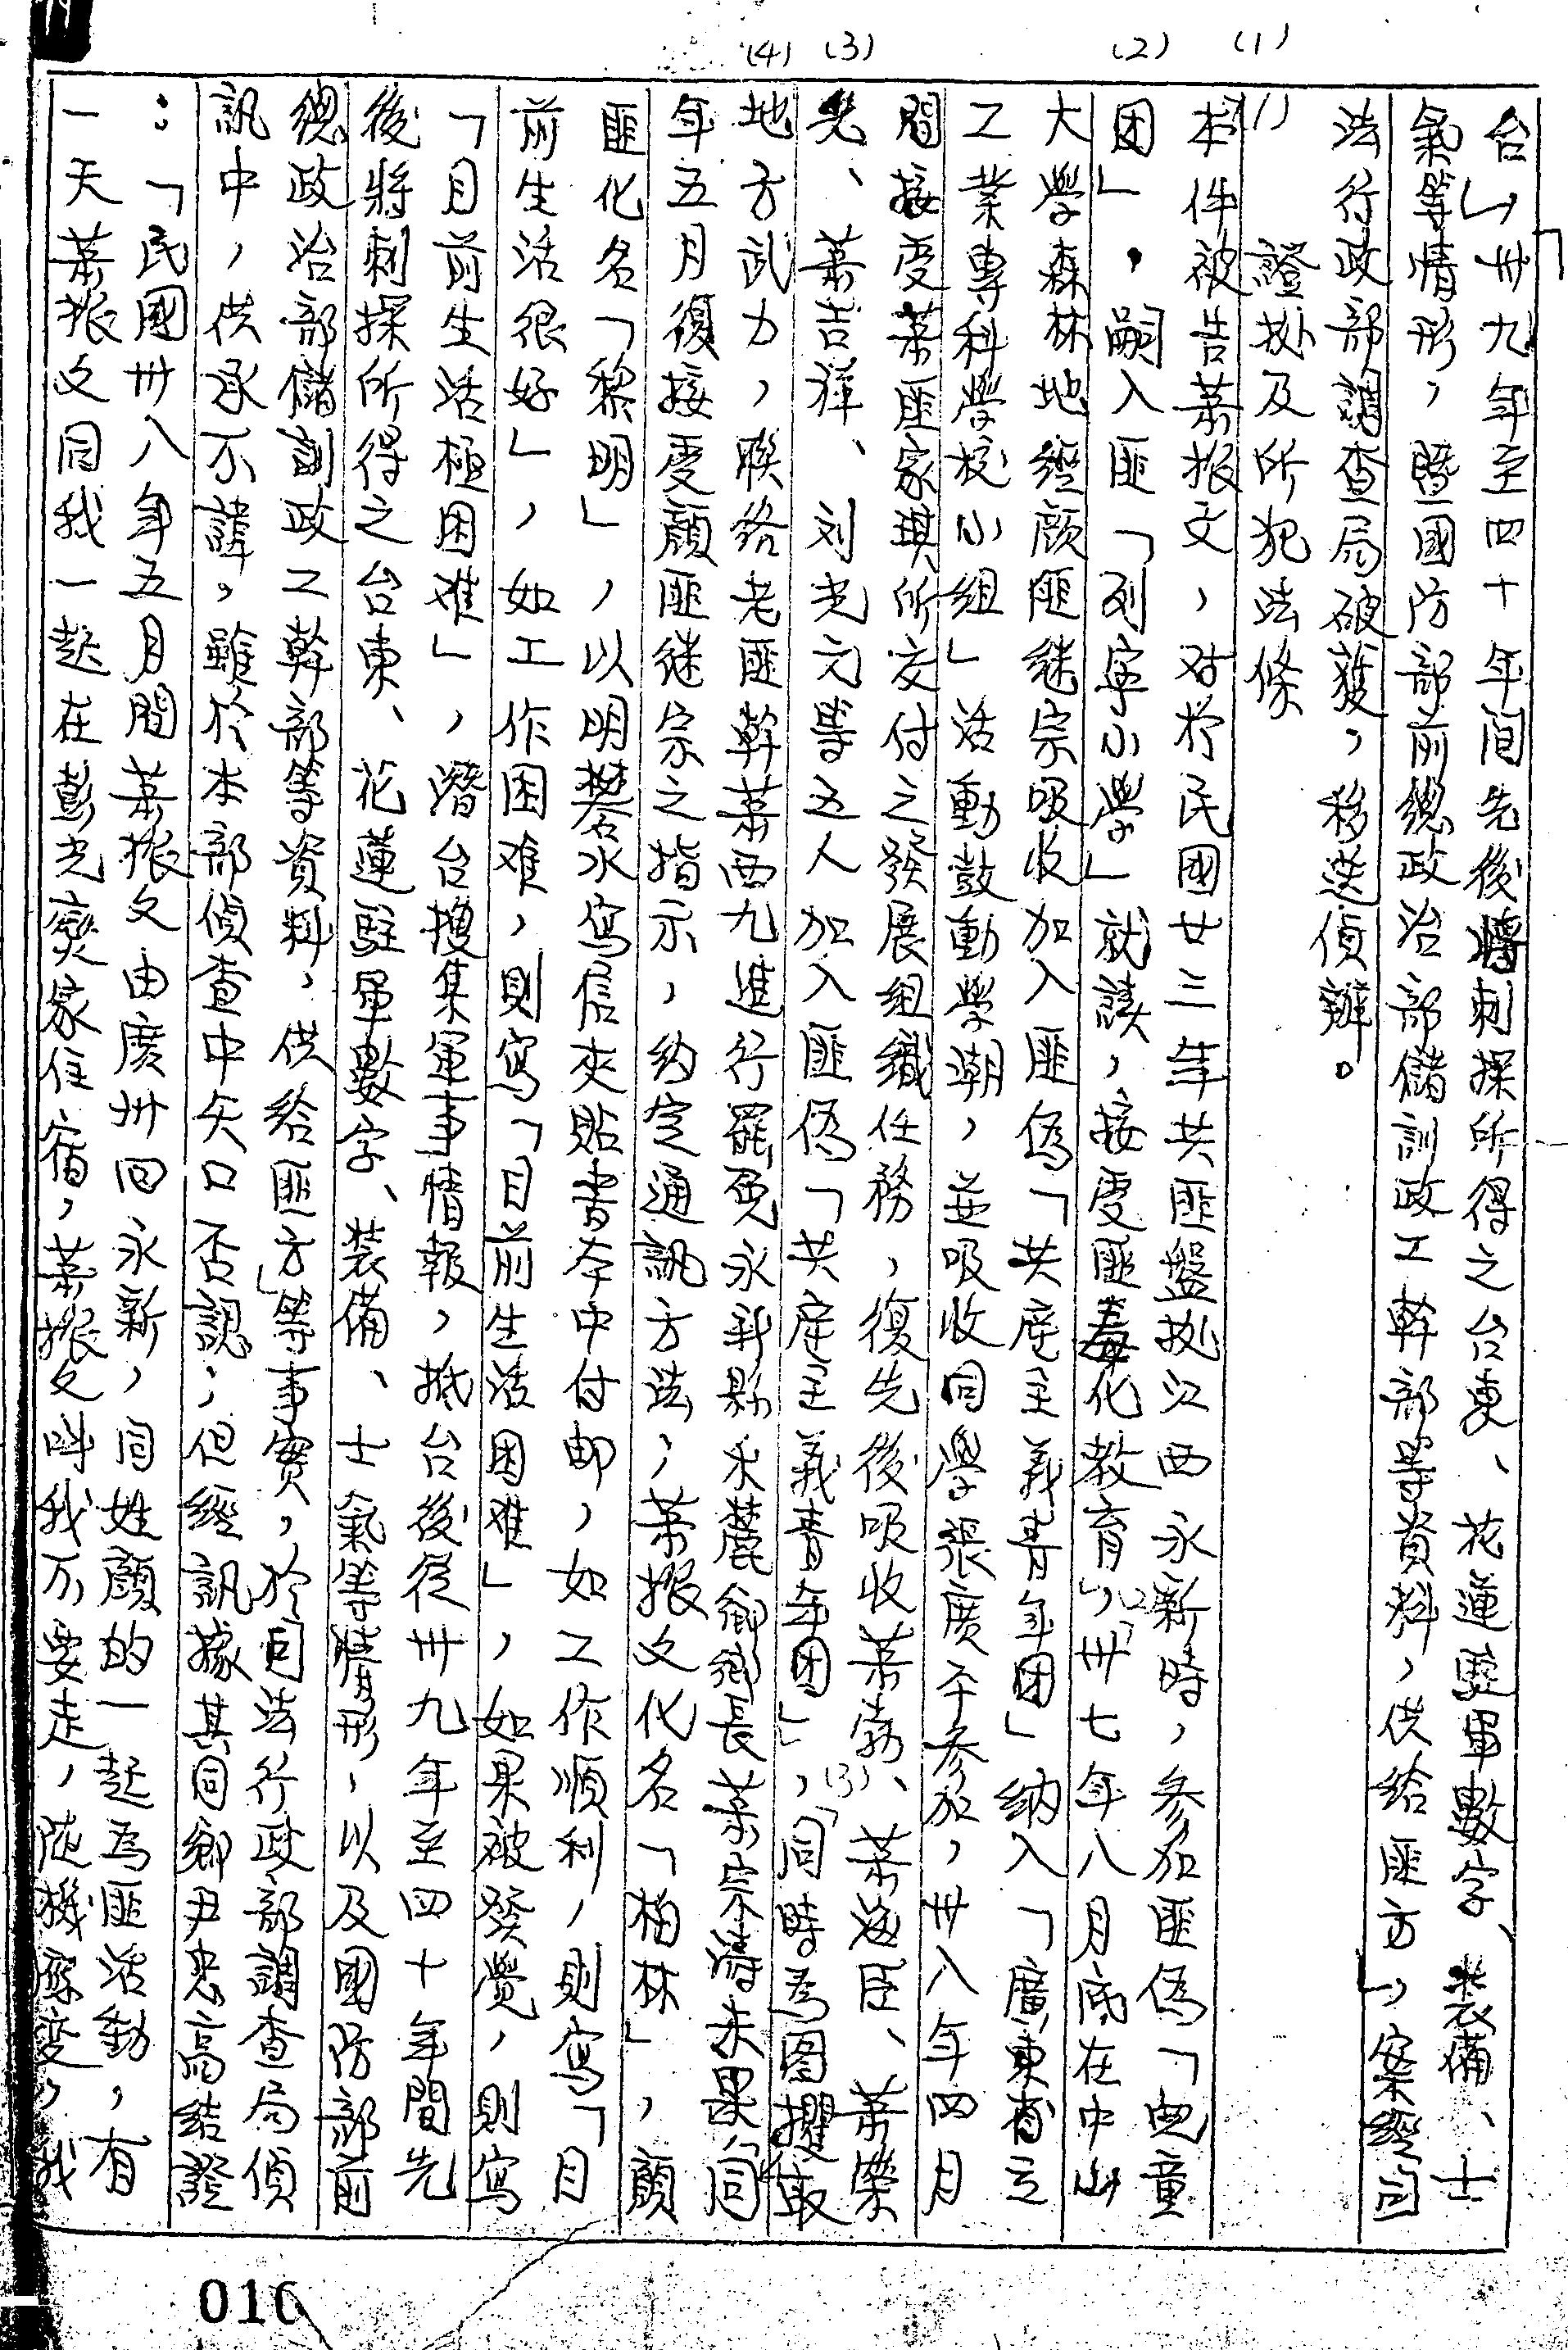 (1)
(2)
(3)
(4)
台」,卅九年至四十年间先後將刺探所得之台東、花蓮駐軍數字、裝備、士
氣等情形,暨國防部前總政治部儲訓政工幹部等資料,供給匪方」,案經司
法行政部調查局破獲,移送偵辦。
證拠及所犯法條
本件被告萧振文,对於民國廿三年共匪盤拠江西永新時,参加匪伪「児童
团」,嗣入匪「列宁小學」就読,接受匪毒化教育」,卅七年八月底在中山
大學森林地經顔匪继宗吸收加入匪伪「共産主義青年团」納入「廣東省立
工業專科學校小組」活動鼓動學潮,並吸收同學張廣平参加,卅八年四月
間接受萧匪家琪所交付之發展組織任務,復先後吸收萧勃、萧海臣、萧榮
光、萧吉祥、刘光元等五人加入匪伪「共産主義青年团」,「同時為图攫取
地方武力,联络老匪幹萧西九進行罷免永新縣禾麓鄉鄉長萧宗濤未果,「同
年五月復接受顔匪继宗之指示,约定通訊方法,萧振文化名「柏林」,顔
匪化名「黎明」,以明礬水寫信夾貼書本中付邮,如工作順利,則寫「目
前生活很好」,如工作困难,則寫「目前生活困难」,如果被發覺,則寫
「目前生活極困难」,潛台搜集軍事情報,抵台後從卅九年至四十年間先
後將刺探所得之台東、花蓮駐軍數字、装備、士氣等情形,以及國防部前
總政治部儲訓政工幹部等資料,供給匪方」等事實,於司法行政部調查局偵
訊中,供承不諱,雖於本部偵查中矢口否認;但經訊據其同鄉尹忠高結證
:「民國卅八年五月間萧振文由廣州回永新,同姓顔的一起為匪活動,有
一天萧振文同我一起在彭光奕家住宿,萧振文叫我不要走,随機應变,我
010